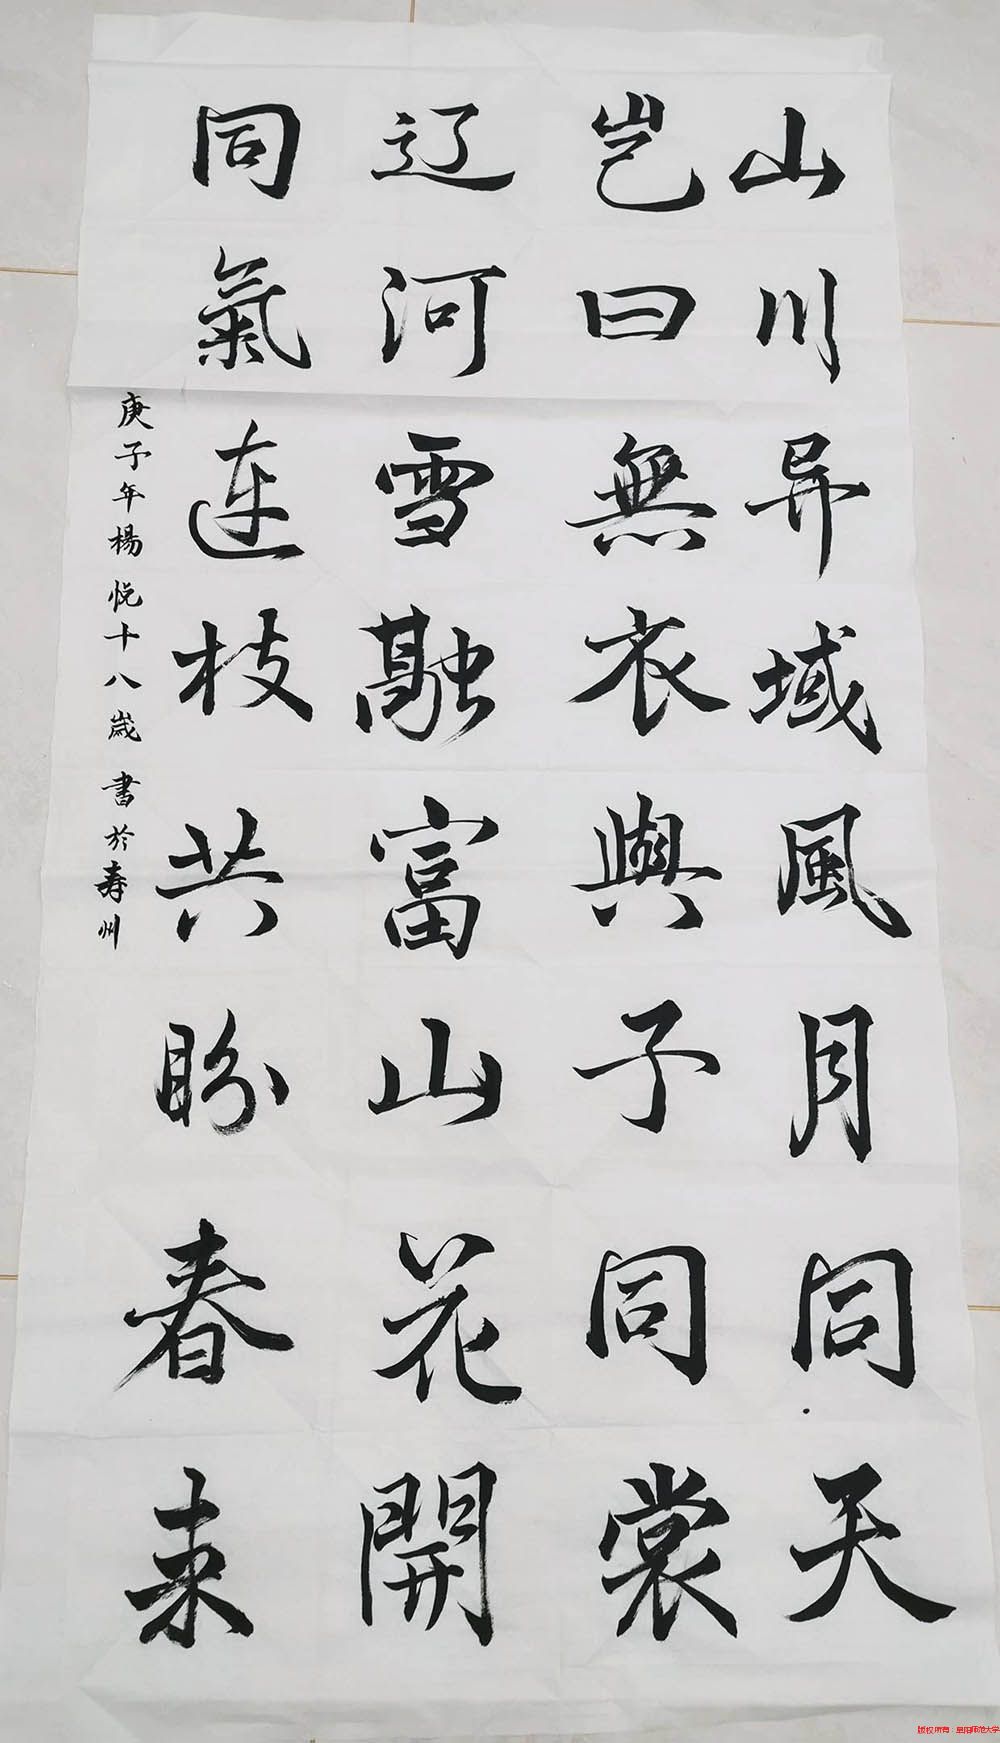 山川异域風月同天
岂曰無衣與子同裳
辽河雪融富山花開
同氣连枝共盼春来
庚子年楊悦十八歲書於寿州
版权所有：阜阳师范大学